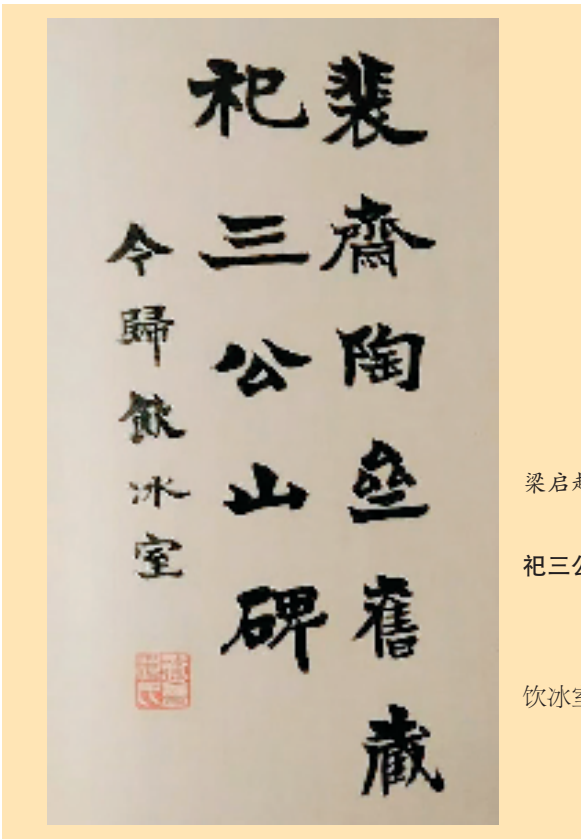 裴齋陶垒舊藏
祀三公山碑
今歸飲冰室
梁启超
祀三公
饮冰室